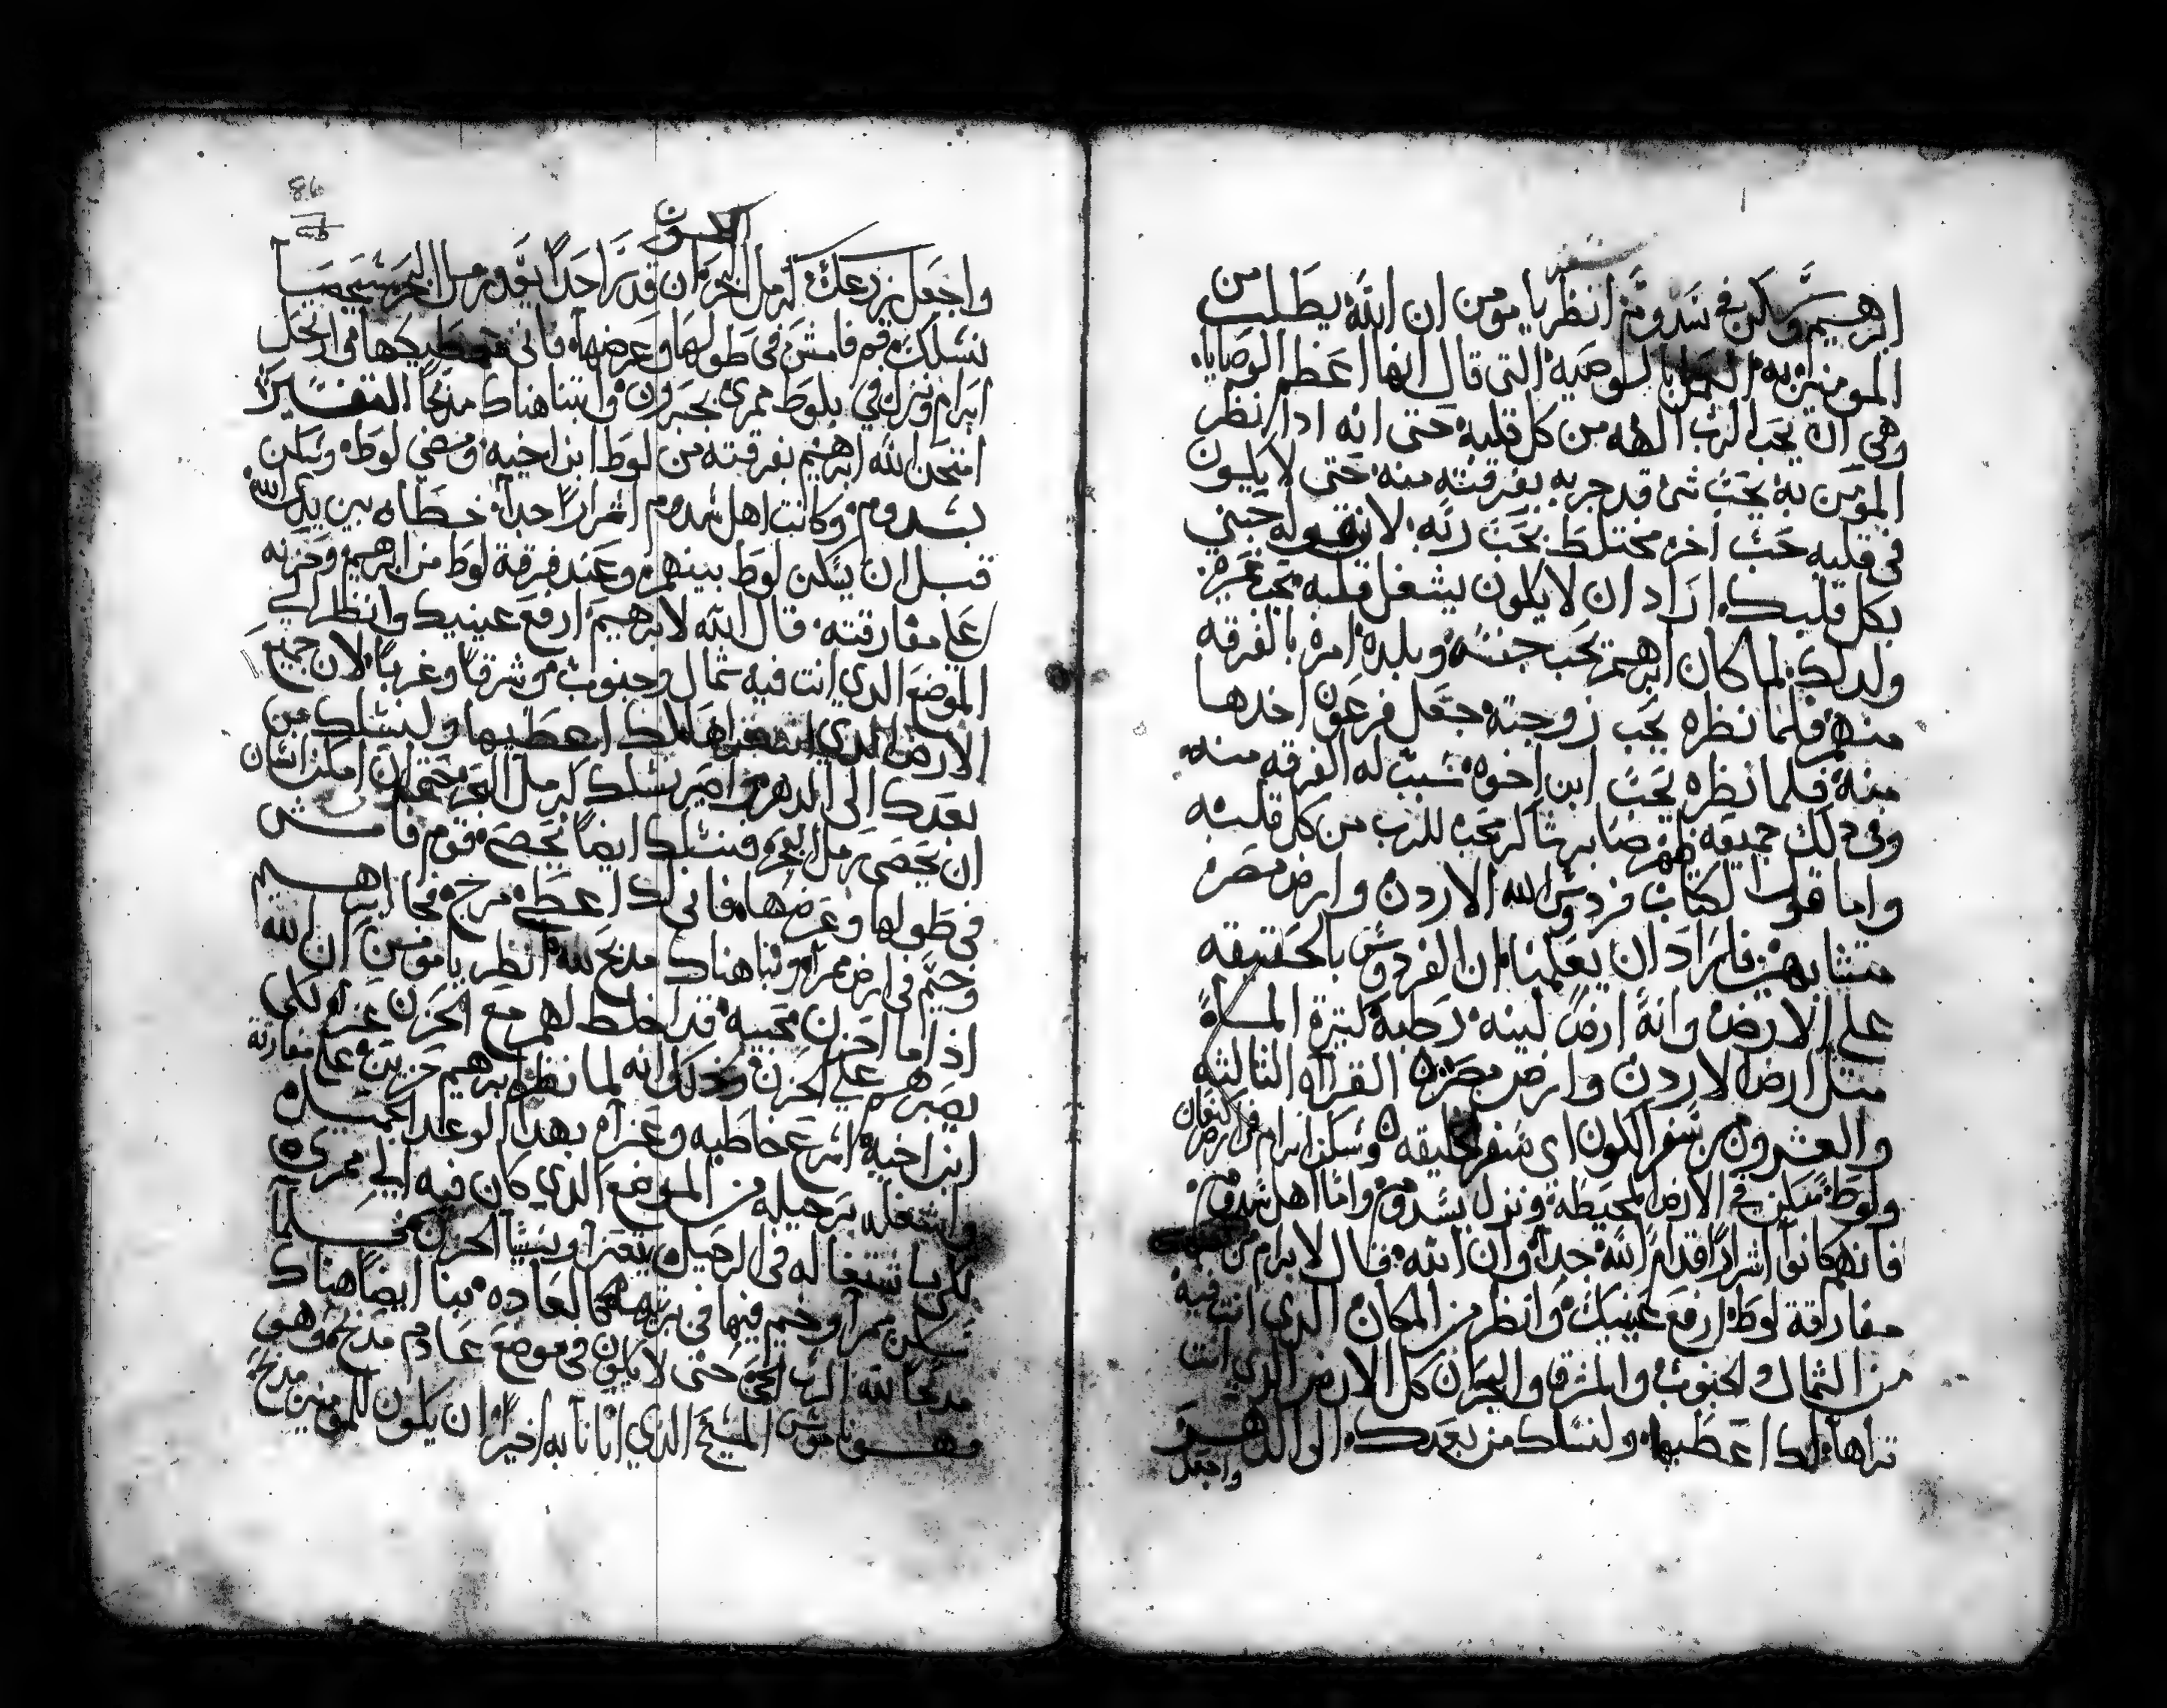 سفر
ابرهيم وسكن في سدوم انظر يا مومن ان الله يطلب من
المومنين به العمل بالوصيه التى قال انها اعظم الوصايا
وهى ان تحب الرب الهه من كل قلبه حتى انه ادا نظر
المومن به يحب شى قد جربه بفرقته منه حتى لا يكون
فى قلبه حب اخر مختلط بحب ربه لانه بقوله حبني
بكل قلبك اراد ان لا يكون يشغل قلبه بحب غيره
ولدلك لما كان ابرهيم يحب جنسه وبلده امره بالفرقه
منهم فلما نظره يحب زوجته جعل فرعون اخدها
منه فلما نظره يحب ابن اخوه سبب له الفرقه منه
وفى دلك جميعه ظهر صابر شاكر محب للرب من كل قلبه
واما قول الكتاب فردوس الله الاردن وارض مصر
متشابهين فاراد ان يعلمنا ان الفردوس بالحقيقه
على الارض وانه ارض لينه رطبه كتيرة الماء
متل ارض الاردن وارض مصر القراه التالته
والعشرون من سفر الكون اى سفر الخليقه وسكن ابرام فى ارض كنعان
ولوط سكن فى الارض المحيطه ونزل بسدوم واما اهل سدوم
فانهم كانوا اشرارا قدام الله جدا وان الله قال لابرام من
مفارقة لوط ارفع عينيك وانظر من المكان الدي انت فيه
من الشمال والجنوب والمشرق والبحر ان كل الارض الدي انت
تراها لك اعطيها ولنسلك من بعدك الى الدهر و
واجعل
86
الكون
واجعل زرعك كرمل البحر ان قدر احدا يعد رمل البحر سيحصى
نسلك قم فامش فى طولها وعرضها فانى معطيكها فارتحل
ابرام ونزل في بلوط ممرى بحبرون وابتنا هناك مدبحا التفسير
امتحن الله ابرهيم بفرقته من لوط ابن اخيه ومضي لوط وسكن
بسدوم وكانت اهل سدوم اشرارا جدا خطاه بين يدى الله
قبل ان يسكن لوط بينهم وعند فرقة لوط من ابرهيم وحزنه
على مفارقته قال الله لابرهيم ارفع عينيك وانظر الى
الموضع الدي انت فيه شمال وجنوب شرقا وغربا لان جميع
الارض الدي تراها لك اعطيها ولنسلك من
بعدك الى الدهر واصير نسلك كرمل البحر حتى ان امكن انسان
ان يحصى رمل البحر فنسلك ايضا يحصى فقوم فامش
فى طولها وعرضها فانى لك اعطى مرج فجا ابرهيم
وخيم فى ارض ممرا وبنا هناك مدبح لله انظر يا مومن ان الله
اذا ما احزن محبيه قد اخلط لهم مع الحزن عزاه لكى
يصبرهم على الحزن ودلك انه لما نظر ابرهيم حزين على مفارقة
ابن اخيه اسرع خاطبه وعزاه بهدا الوعد الجميل
واشغله برحيله من الموضع الدي كان فيه الى ممرى
لكى باشتغاله فى الرحيل يتعزا وينسا الحزن فلما
سكن ممرا وخيم فيها فى بريه كالعاده بنا ايضا هناك
مدبحا لله الرب الحى حتى لا يكون فى موضع عادم مدبحه وهو
وهو ناموس المسيح الدي اتانا به اخيرا ان يكون للمومنين مدبح